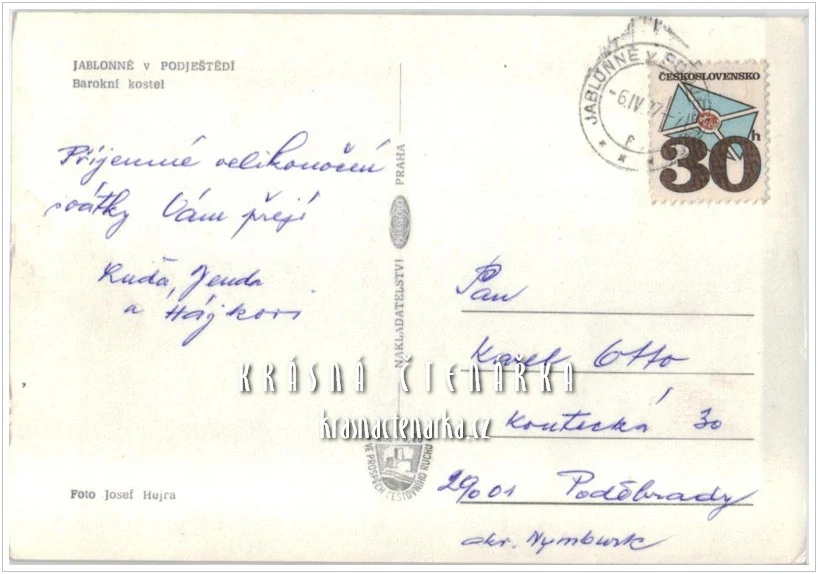 JABLONNÉ V PODJEŠTĚDÍ
Barokní kostel
Příjemné velikonoční
svátky Vám přejí
Luďa, Jenda
a Hájkovi
Foto Josef Hejra
NAKLADATELSTVÍ PRAHA
VE PROSPĚCH CESTOVNÍHO RUCHU
JABLONNÉ V
-6.IV.77
ČESKOSLOVENSKO
30h
Pan
Karel Otto
Koutecká 30
29001 Poděbrady
okr. Nymburk
KRÁSNÁ ČTENÁŘKA
krasnactenarka.cz